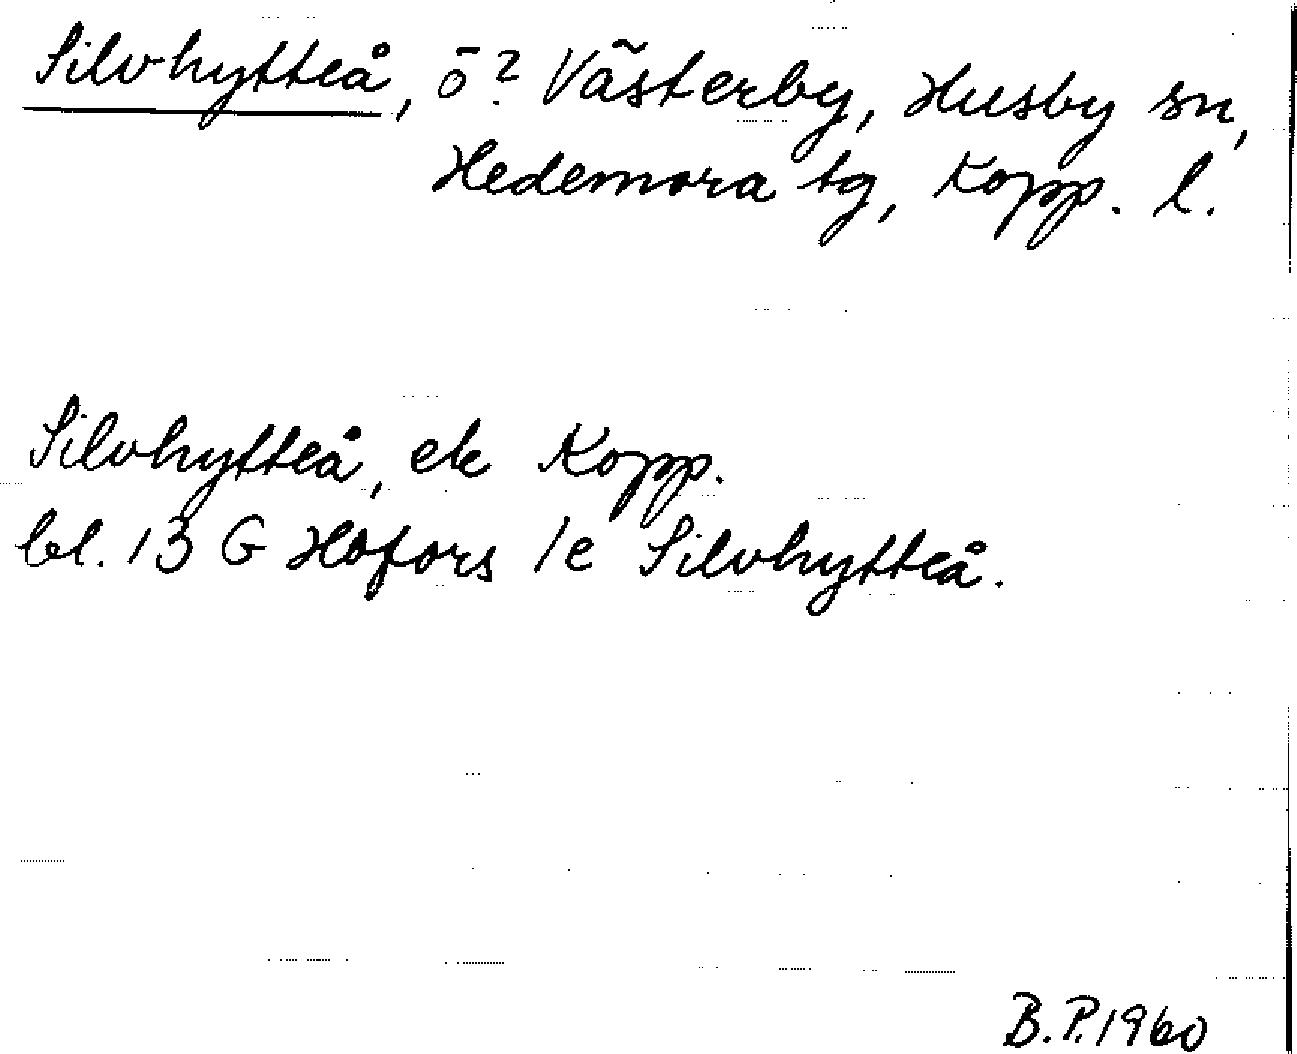 Silvhytteå, ö? Västerby, Husby sn,
Hedemora tg, Kopp. l.
Silvhytteå, ek Kopp.
bl. 13 G Hofors 1e Silvhytteå.
B.P. 1960